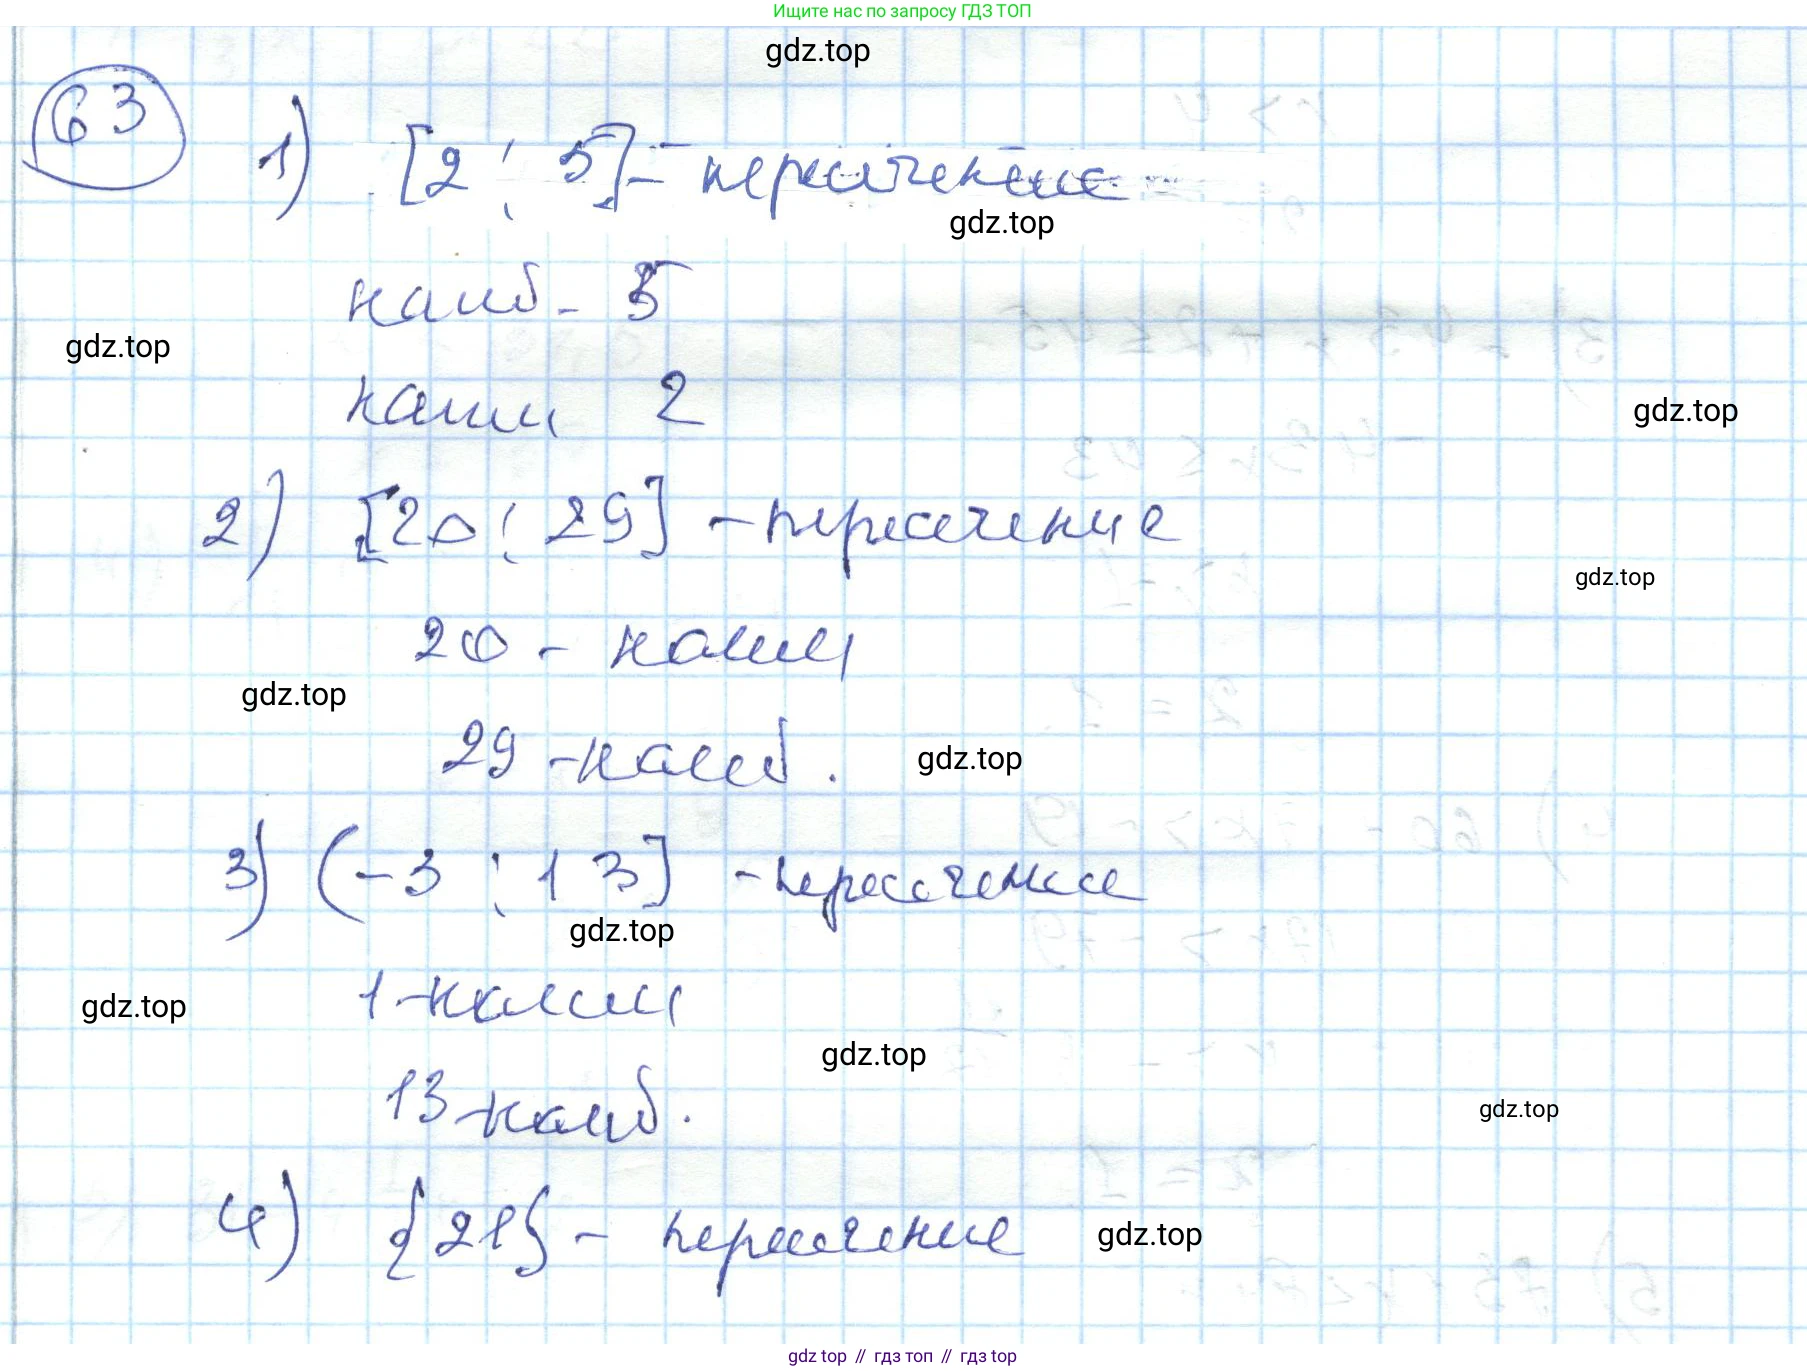 Ищите нас по запросу ГДЗ ТОП
gdz.top
63
1) [2 ; 5] - пересечение
gdz.top
наиб - 5
gdz.top
наим 2
gdz.top
2) [20 ; 29] - пересечение
gdz.top
20 - наим
gdz.top
29 - наиб.
gdz.top
3) (-3 ; 13] - пересечение
gdz.top
1 - наим
gdz.top
gdz.top
13 - наиб.
gdz.top
4) {21} - пересечение
gdz.top
gdz top // гдз топ // gdz top